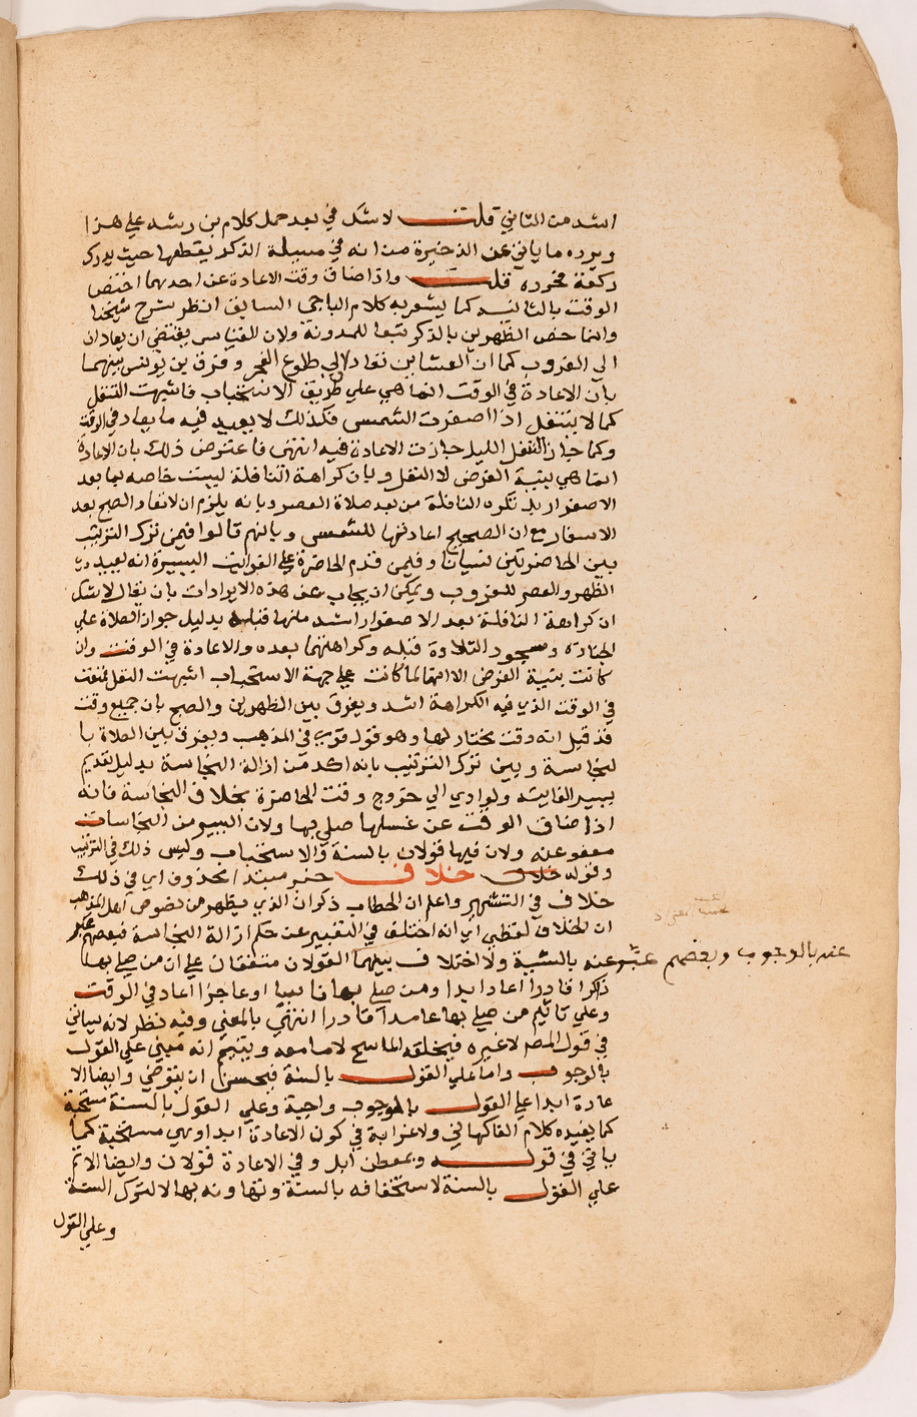 اشد من الثاني قلت لا شك في بعد حمل كلام بن رشد علي هذا
ويرده ما ياتي عن الذخيرة من انه في مسيلة الذكر يقطعها حيث يدرك
ركعة فحرره قلت واذا ضاق وقت الاعادة عن احديهما اختص
الوقت بالثانية كما يشعر به كلام الباجي السابق انظر شرح شيخنا
وانما خص الظهرين بالذكر تبعا للمدونة ولان القياس يقتضي ان يعادان
الي الغروب كما ان العشاين تعاد الي طلوع الفجر وفرق بن يونس بينهما
بان الاعادة في الوقت انما هي علي طريق الاستحباب فاشبهت التنفل
كما لا يتنفل اذا اصفرت الشمس فكذلك لا يعيد فيه ما يعاد في الوقت
وكما جاز التنفل الليل جازت الاعادة فيه انتهي فاعترض ذلك بان الاعادة
انما هي بنية الفرض لا النفل وبان كراهة النافلة ليست خاصه بما بعد
الاصفرار بل تكره النافلة من بعد صلاة العصر وبانه يلزم ان لا تعاد الصبح بعد
الاسفار مع ان الصحيح اعادتها للشمس وبانهم قالوا فيمن ترك الترتيب
بين الحاضرتين نسيانا وفيمن قدم الحاضرة علي الفوايت اليسيرة انه يعيد
الظهر والعصر للغروب ويمكن ان يجاب عن هذه الايرادات بان يقال لا شك
ان كراهة النافلة بعد الاصفرار اشد منها قبله بدليل جواز الصلاة علي
الجنازه وسجود التلاوة قبله وكراهتهما بعده والاعادة في الوقت وان
كانت بنية الفرض الا انها لما كانت علي جهة الاستحباب اشبهت النفل فمنعت
في الوقت الذي فيه الكراهة اشد ويفرق بين الظهرين والصبح بان جميع وقت
قد قيل انه وقت مختار لها وهو قول قوي في المذهب ويفرق بين الصلاة با
لنجاسة وبين ترك الترتيب بانه اكد من ازالة النجاسة بدليل تقديم
يسير الفايته ولو ادي الي خروج وقت الحاضرة بخلاف النجاسة فانه
اذا ضاق الوقت عن غسلها صلي بها ولان اليسير من النجاسات
معفو عنه ولان فيها قولان بالسنة والاستحباب وليس ذلك في الترتيب
وقوله خلاف خلاف خبر مبتدا محذوف اي في ذلك
خلاف في التشهير واعلم ان الحطاب ذكر ان الذي يظهر من نصوص اهل المذهب
ان الخلاف لفظي اي انه اختلف في التعبير عن حكم ازالة النجاسة فبعضهم عبر
عنه بالوجوب وبعضهم عبر عنه بالسنية ولا اختلاف بينهما القولان متفقان علي ان من صلي بها
ذاكرا قادرا اعاد ابدا ومن صلي بها ناسيا او عاجزا اعاد في الوقت
وعلي تاثيم من صلي بها عامدا قادرا انتهي بالمعني وفيه نظر لانه سياتي
في قول المصـ لا غيره فيخلعه الماسح لا ما معه ويتيمم انه مبني علي القول
بالوجوب واما علي القول بالسنة فيحسن ان يتوضي وايضا الا
عادة ابدا علي القول بالوجوب واجبة وعلي القول بالسنة مستحبة
كما يفيده كلام الفاكهاني ولا غرابة في كون الاعادة ابدا وهي مستحبة كما
ياتي في قوله وبمعطن ابل وفي الاعادة قولان وايضا الاثم
علي القول بالسنة لاستخفافه بالسنة وتهاونه بها لا لترك السنة
وعلي القول